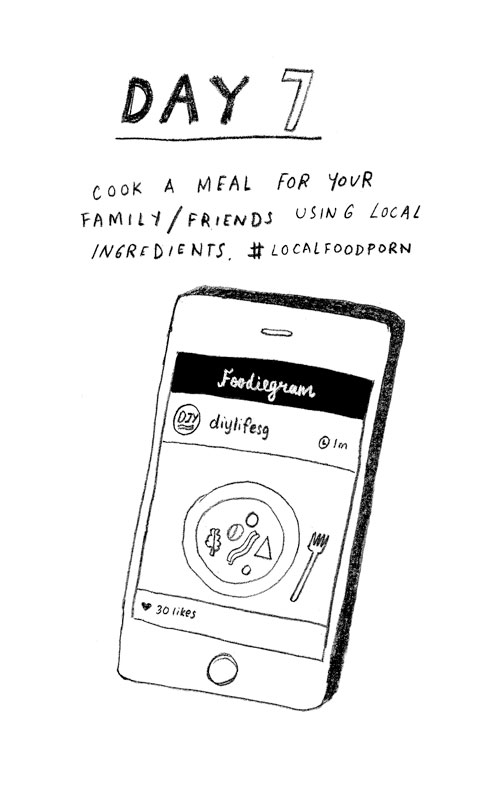 DAY 7
COOK A MEAL FOR YOUR
FAMILY/FRIENDS USING LOCAL
INGREDIENTS. #LOCALFOODPORN
Foodiegram
DIY
diylifesg
1m
30 likes